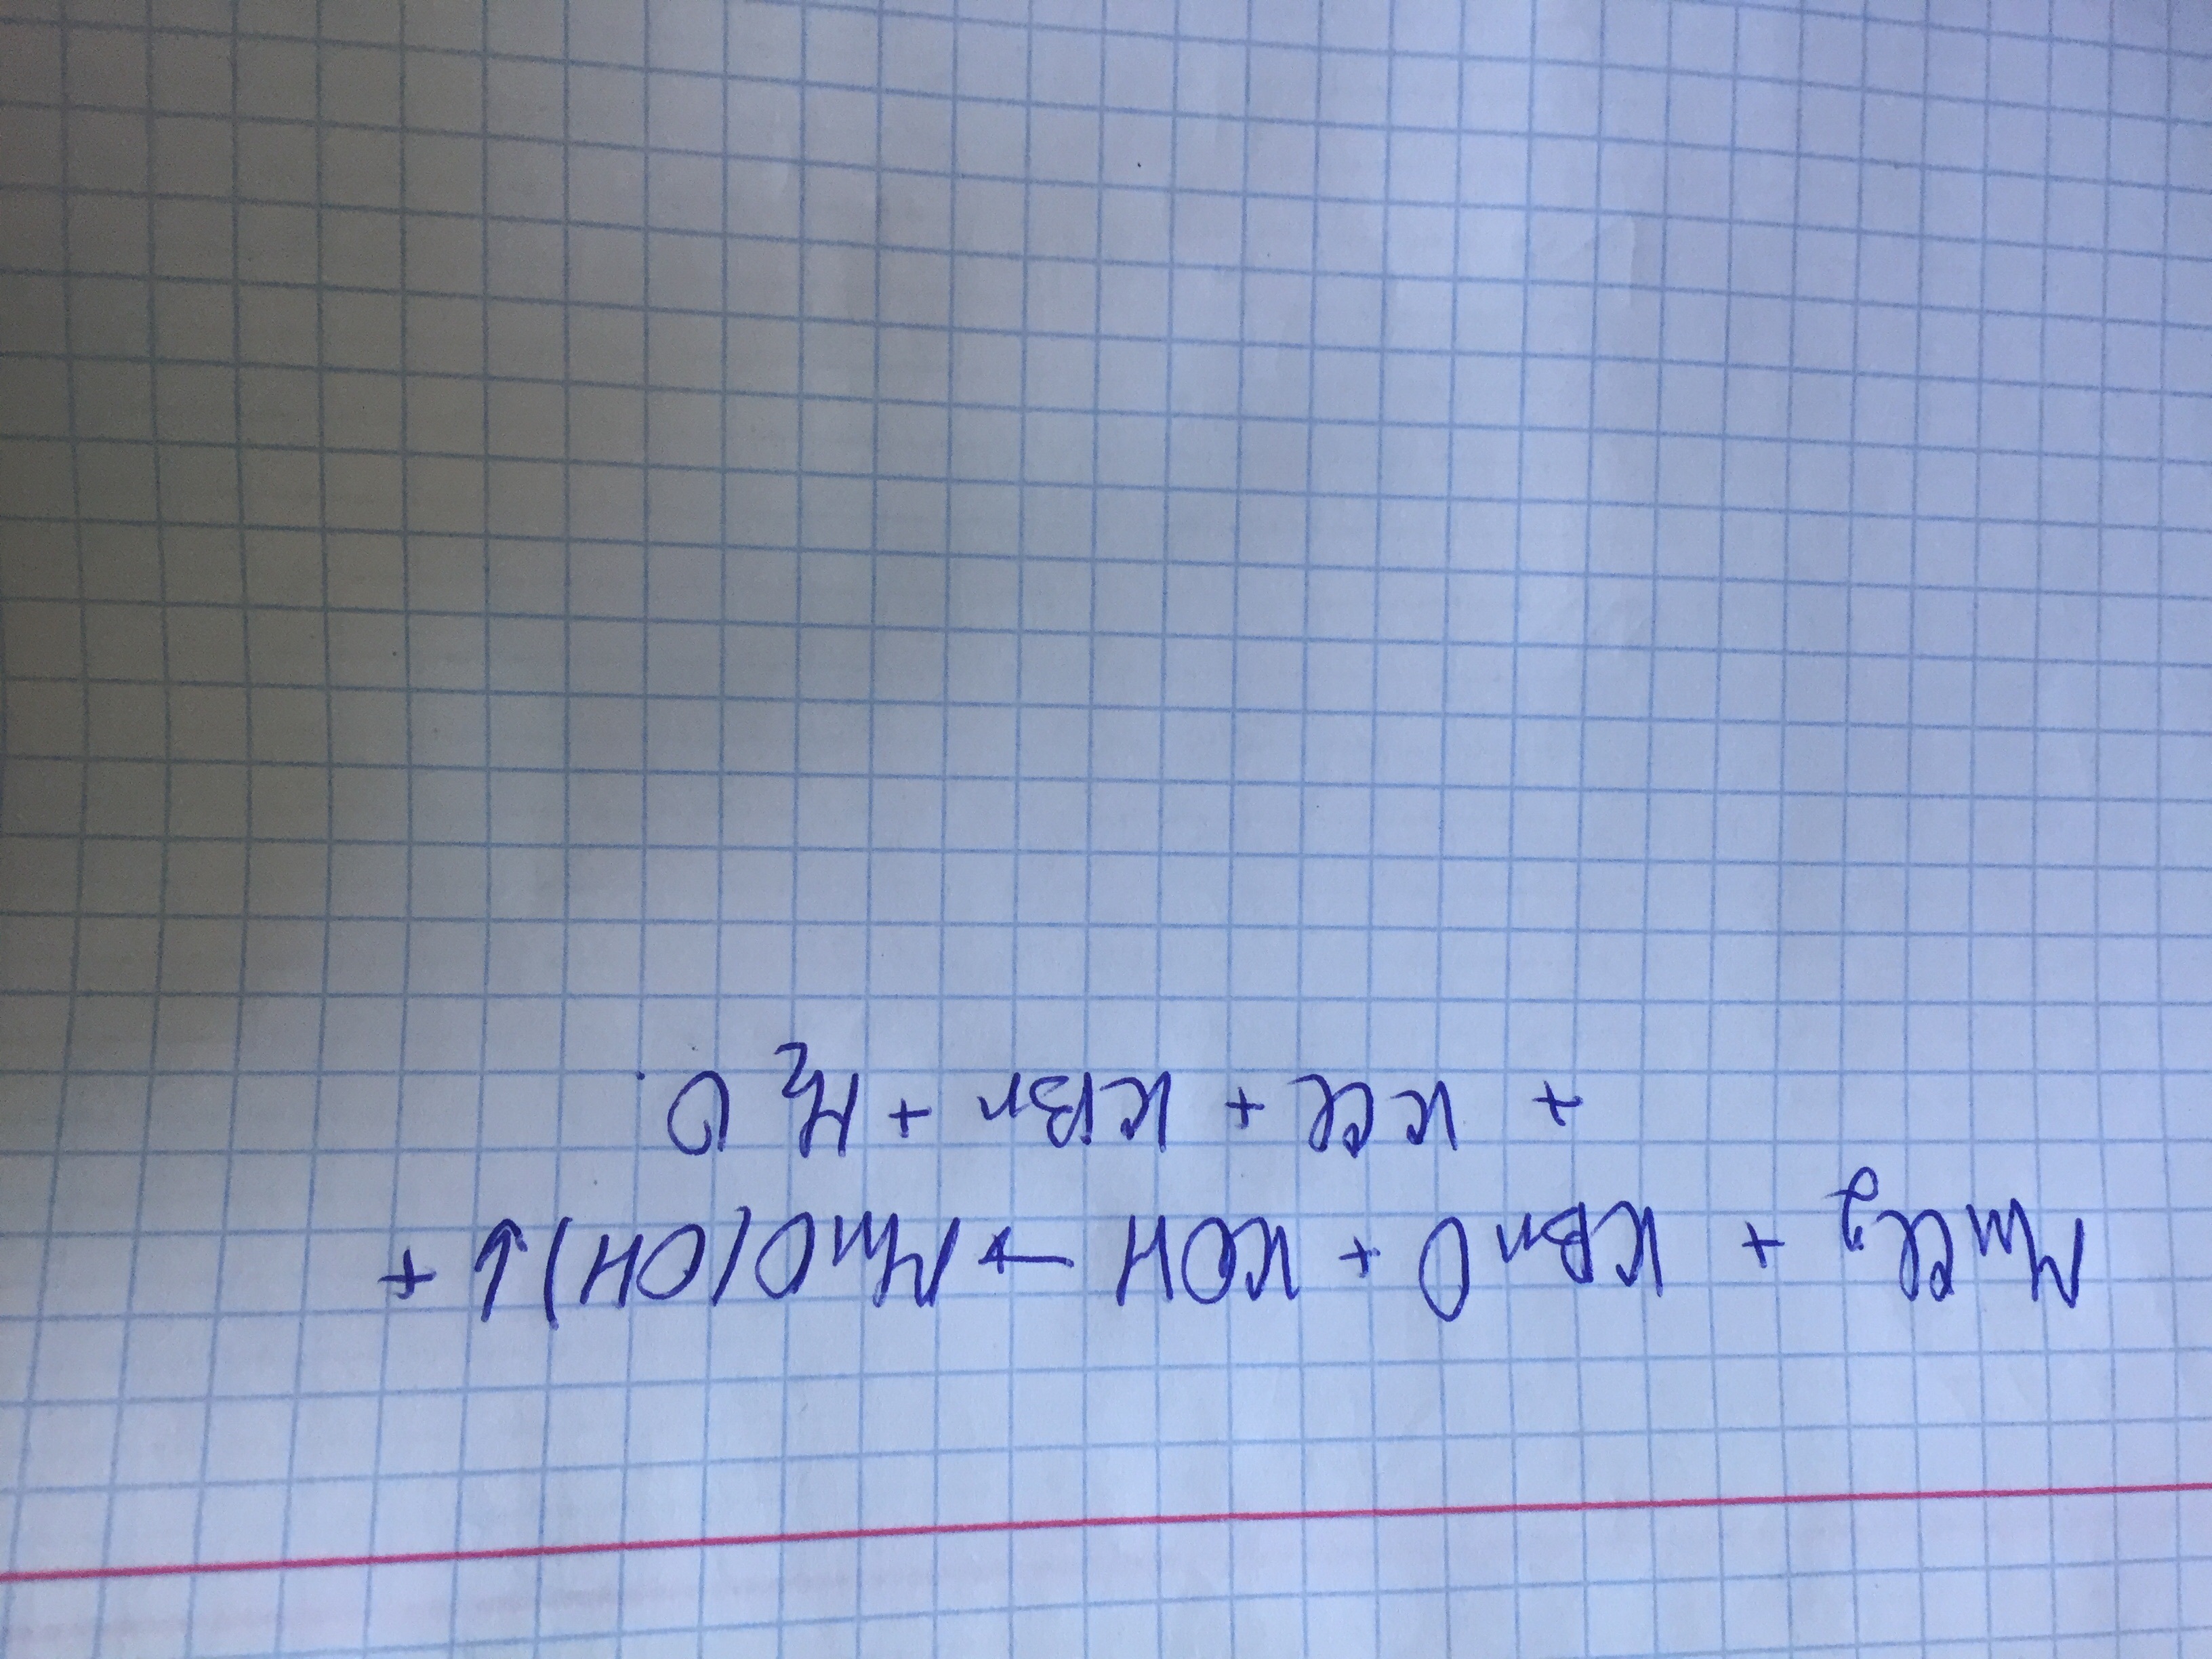 MnCl₂ + KBrO + KOH → MnO(OH)↓ +
+ KCl + KBr + H₂O.